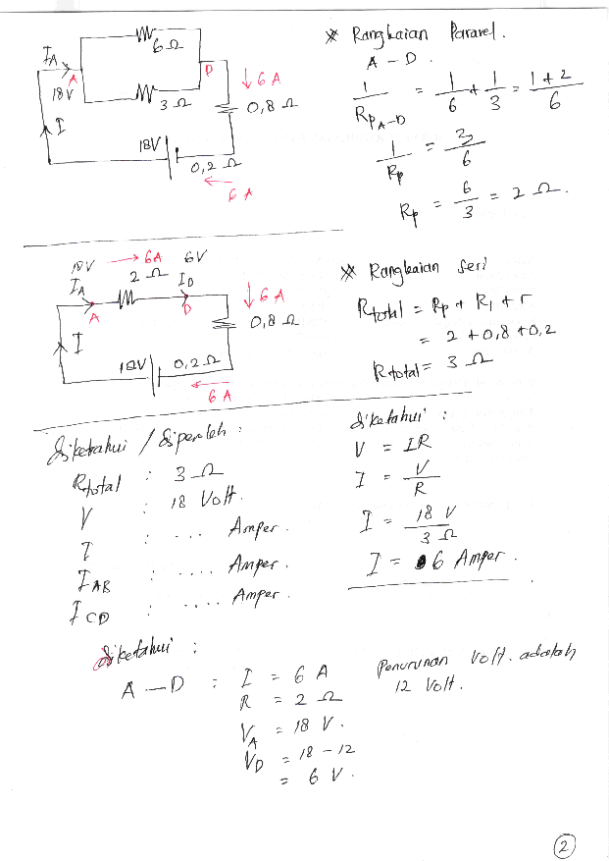 6 Ω
I_A
A
D
18V
3 Ω
↓ 6 A
0,8 Ω
I
18V
0,2 Ω
← 6 A
※ Rangkaian Pararel.
A – D.
1/Rp A–D = 1/6 + 1/3 = 1+2/6
1/Rp = 3/6
Rp = 6/3 = 2 Ω.
18V → 6A 6V
I_A 2 Ω I_D
A D
↓ 6 A
0,8 Ω
I
18V 0,2 Ω
← 6 A
※ Rangkaian Seri
Rtotal = Rp + R1 + r
= 2 + 0,8 + 0,2
Rtotal = 3 Ω
diketahui / diperoleh :
Rtotal : 3 Ω
V : 18 Volt.
I : .... Amper.
I AB : .... Amper.
I CD : .... Amper.
diketahui :
V = IR
I = V/R
I = 18 V/3 Ω
I = 6 Amper.
diketahui :
A – D : I = 6 A
R = 2 Ω
V_A = 18 V.
V_D = 18 – 12
= 6 V.
Penurunan Volt. adalah
12 Volt.
2